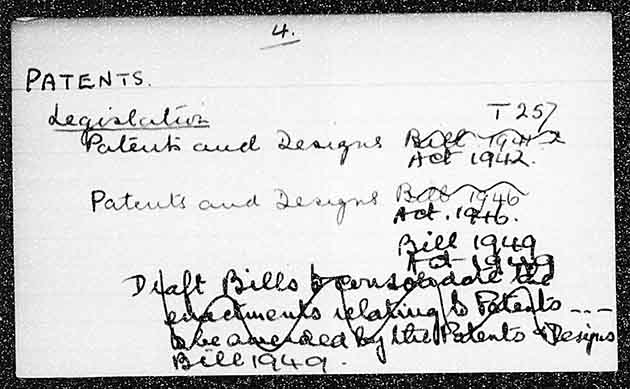 4.
PATENTS.
Legislation T 257
Patents and Designs Bill 1941-2
Act 1942.
Patents and Designs Bill 1946
Act. 1946.
Bill 1949
Act 1949
Draft Bills to consolidate the
enactments relating to Patents ---
to be amended by the Patents & Designs
Bill 1949.